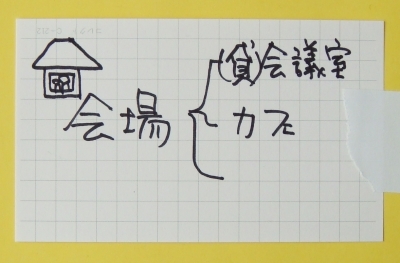 (貸)会議室
会場
カフェ